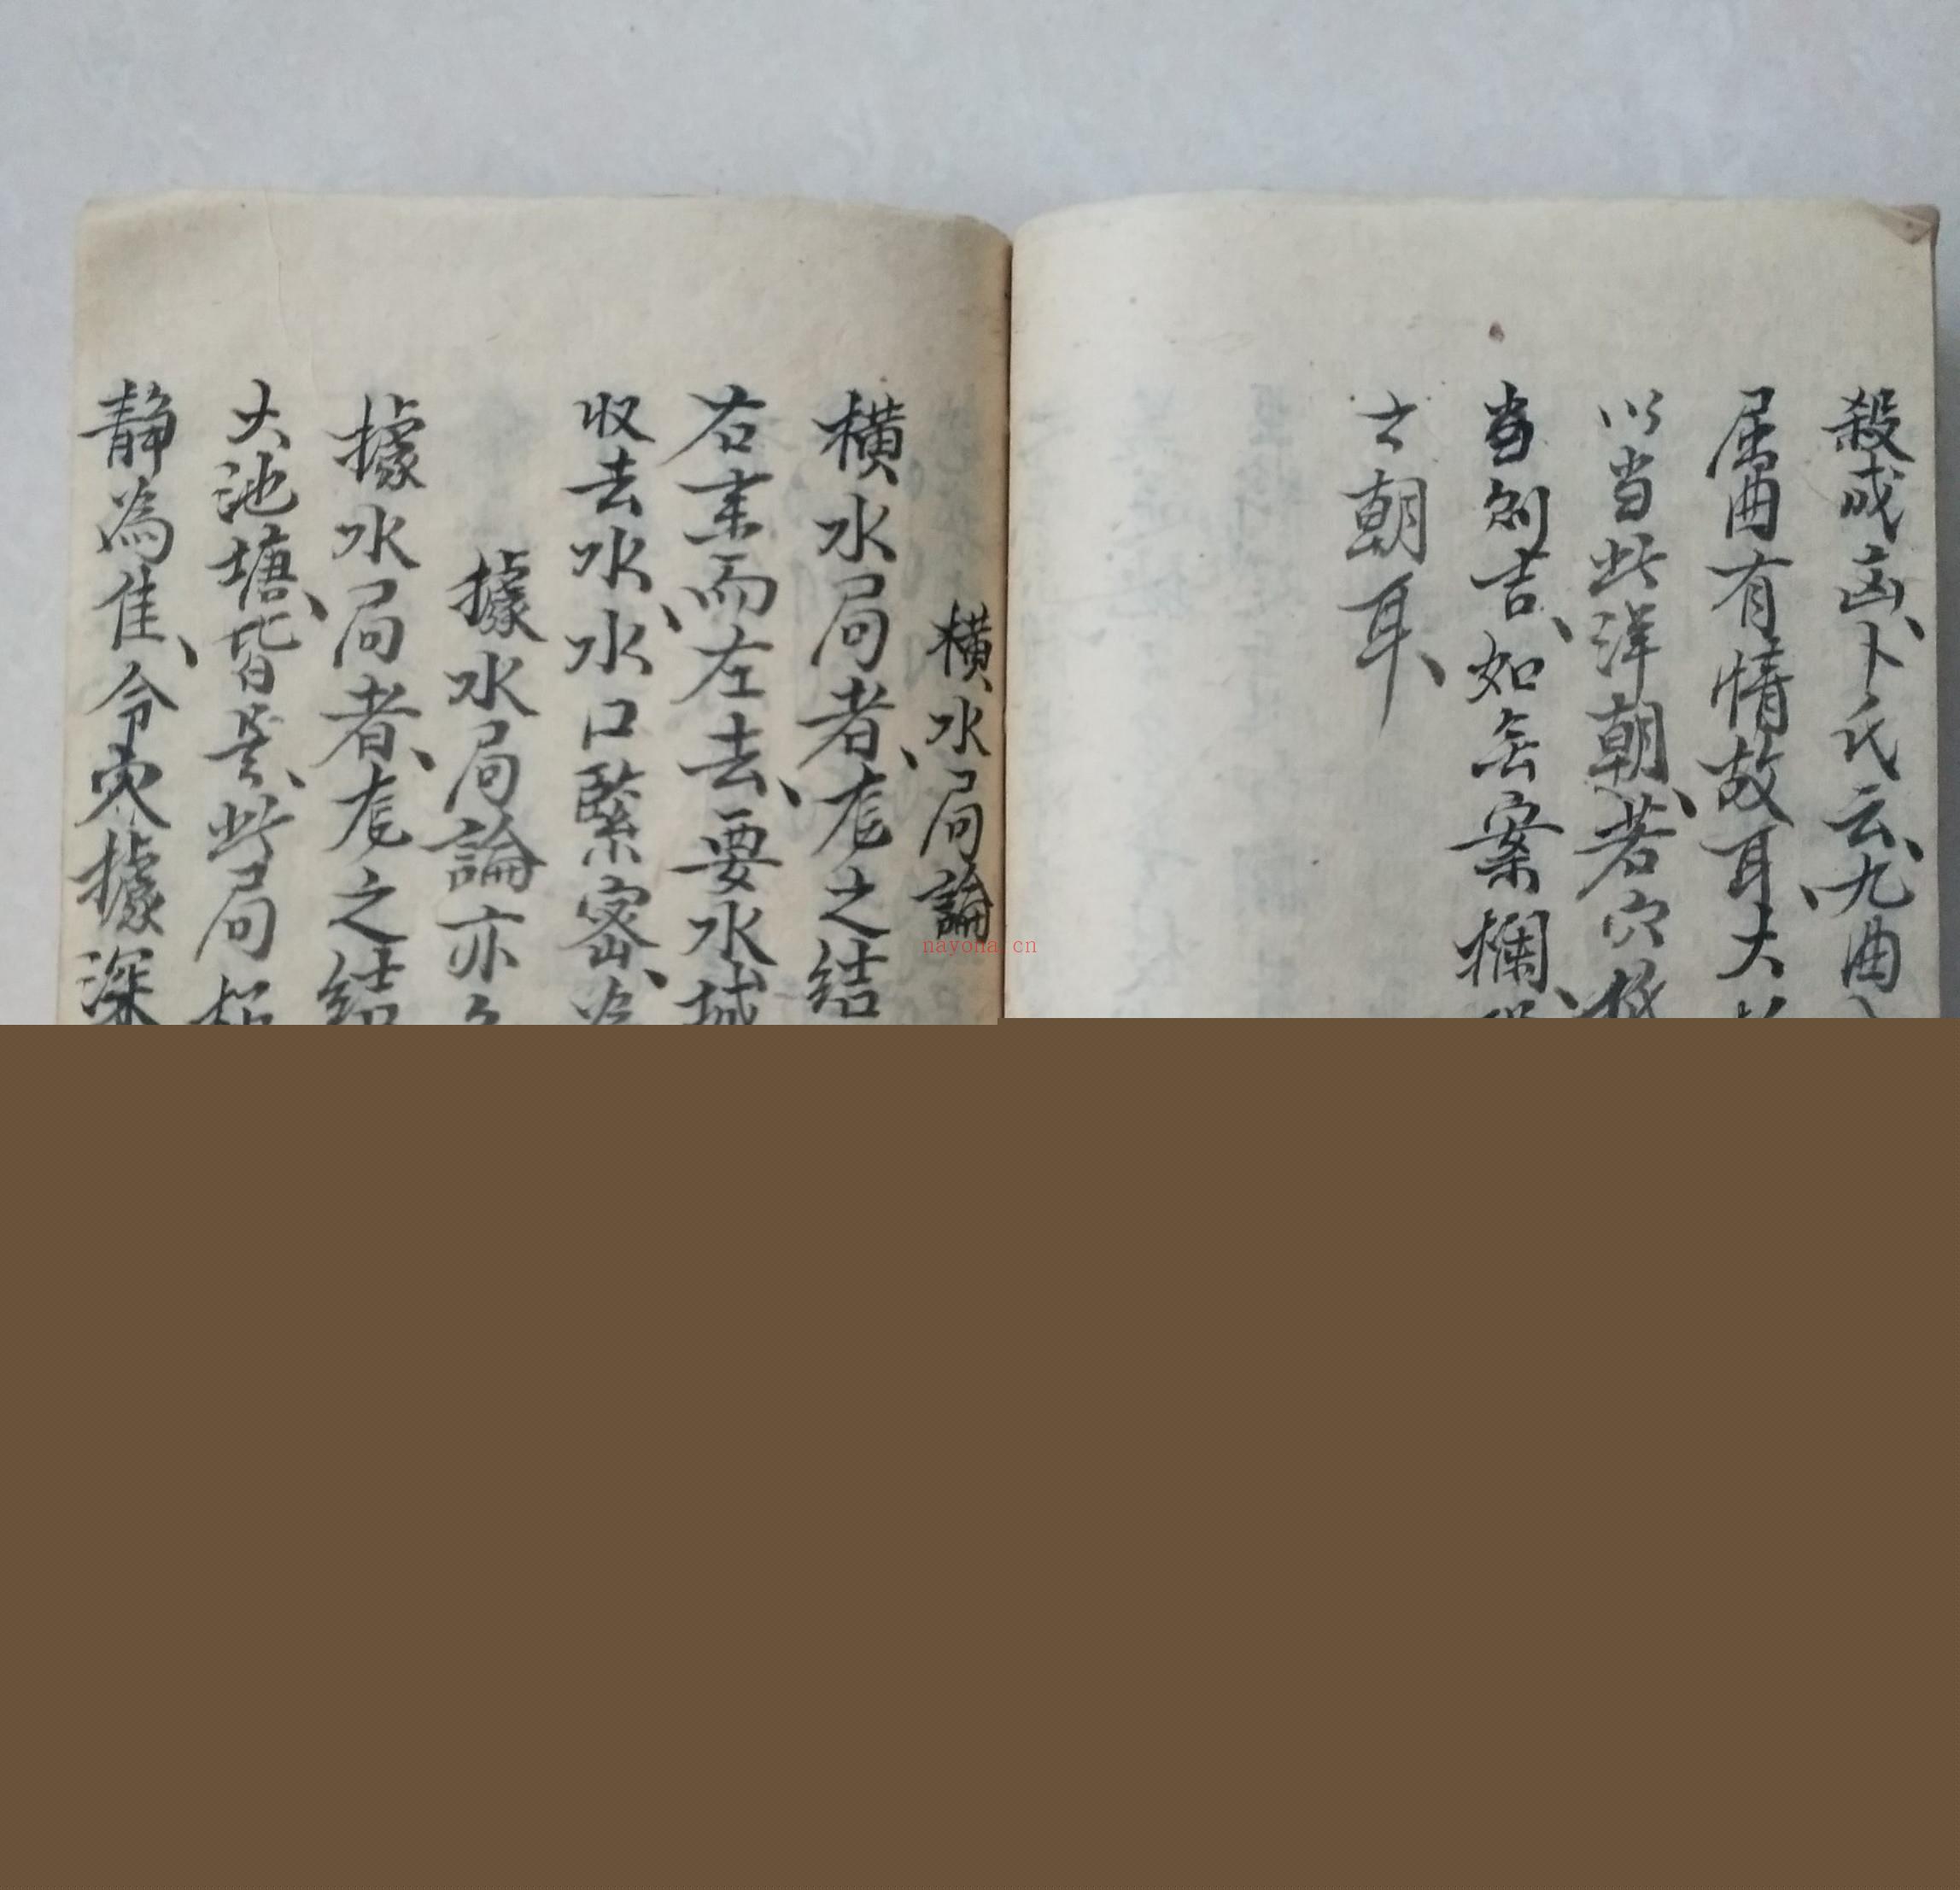 殺成凶、卜氏云、九曲
屈曲有情故耳、大
以当此洋朝、若穴
当創吉、如無案欄、
士朝耳、
橫水局論
橫水局者、龙之結
右来而左去、要水城
収去水、水口緊密、
據水局論亦
據水局者、龙之結
大池塘、皆是、此局
静為佳、令衆據深
nayona.cn